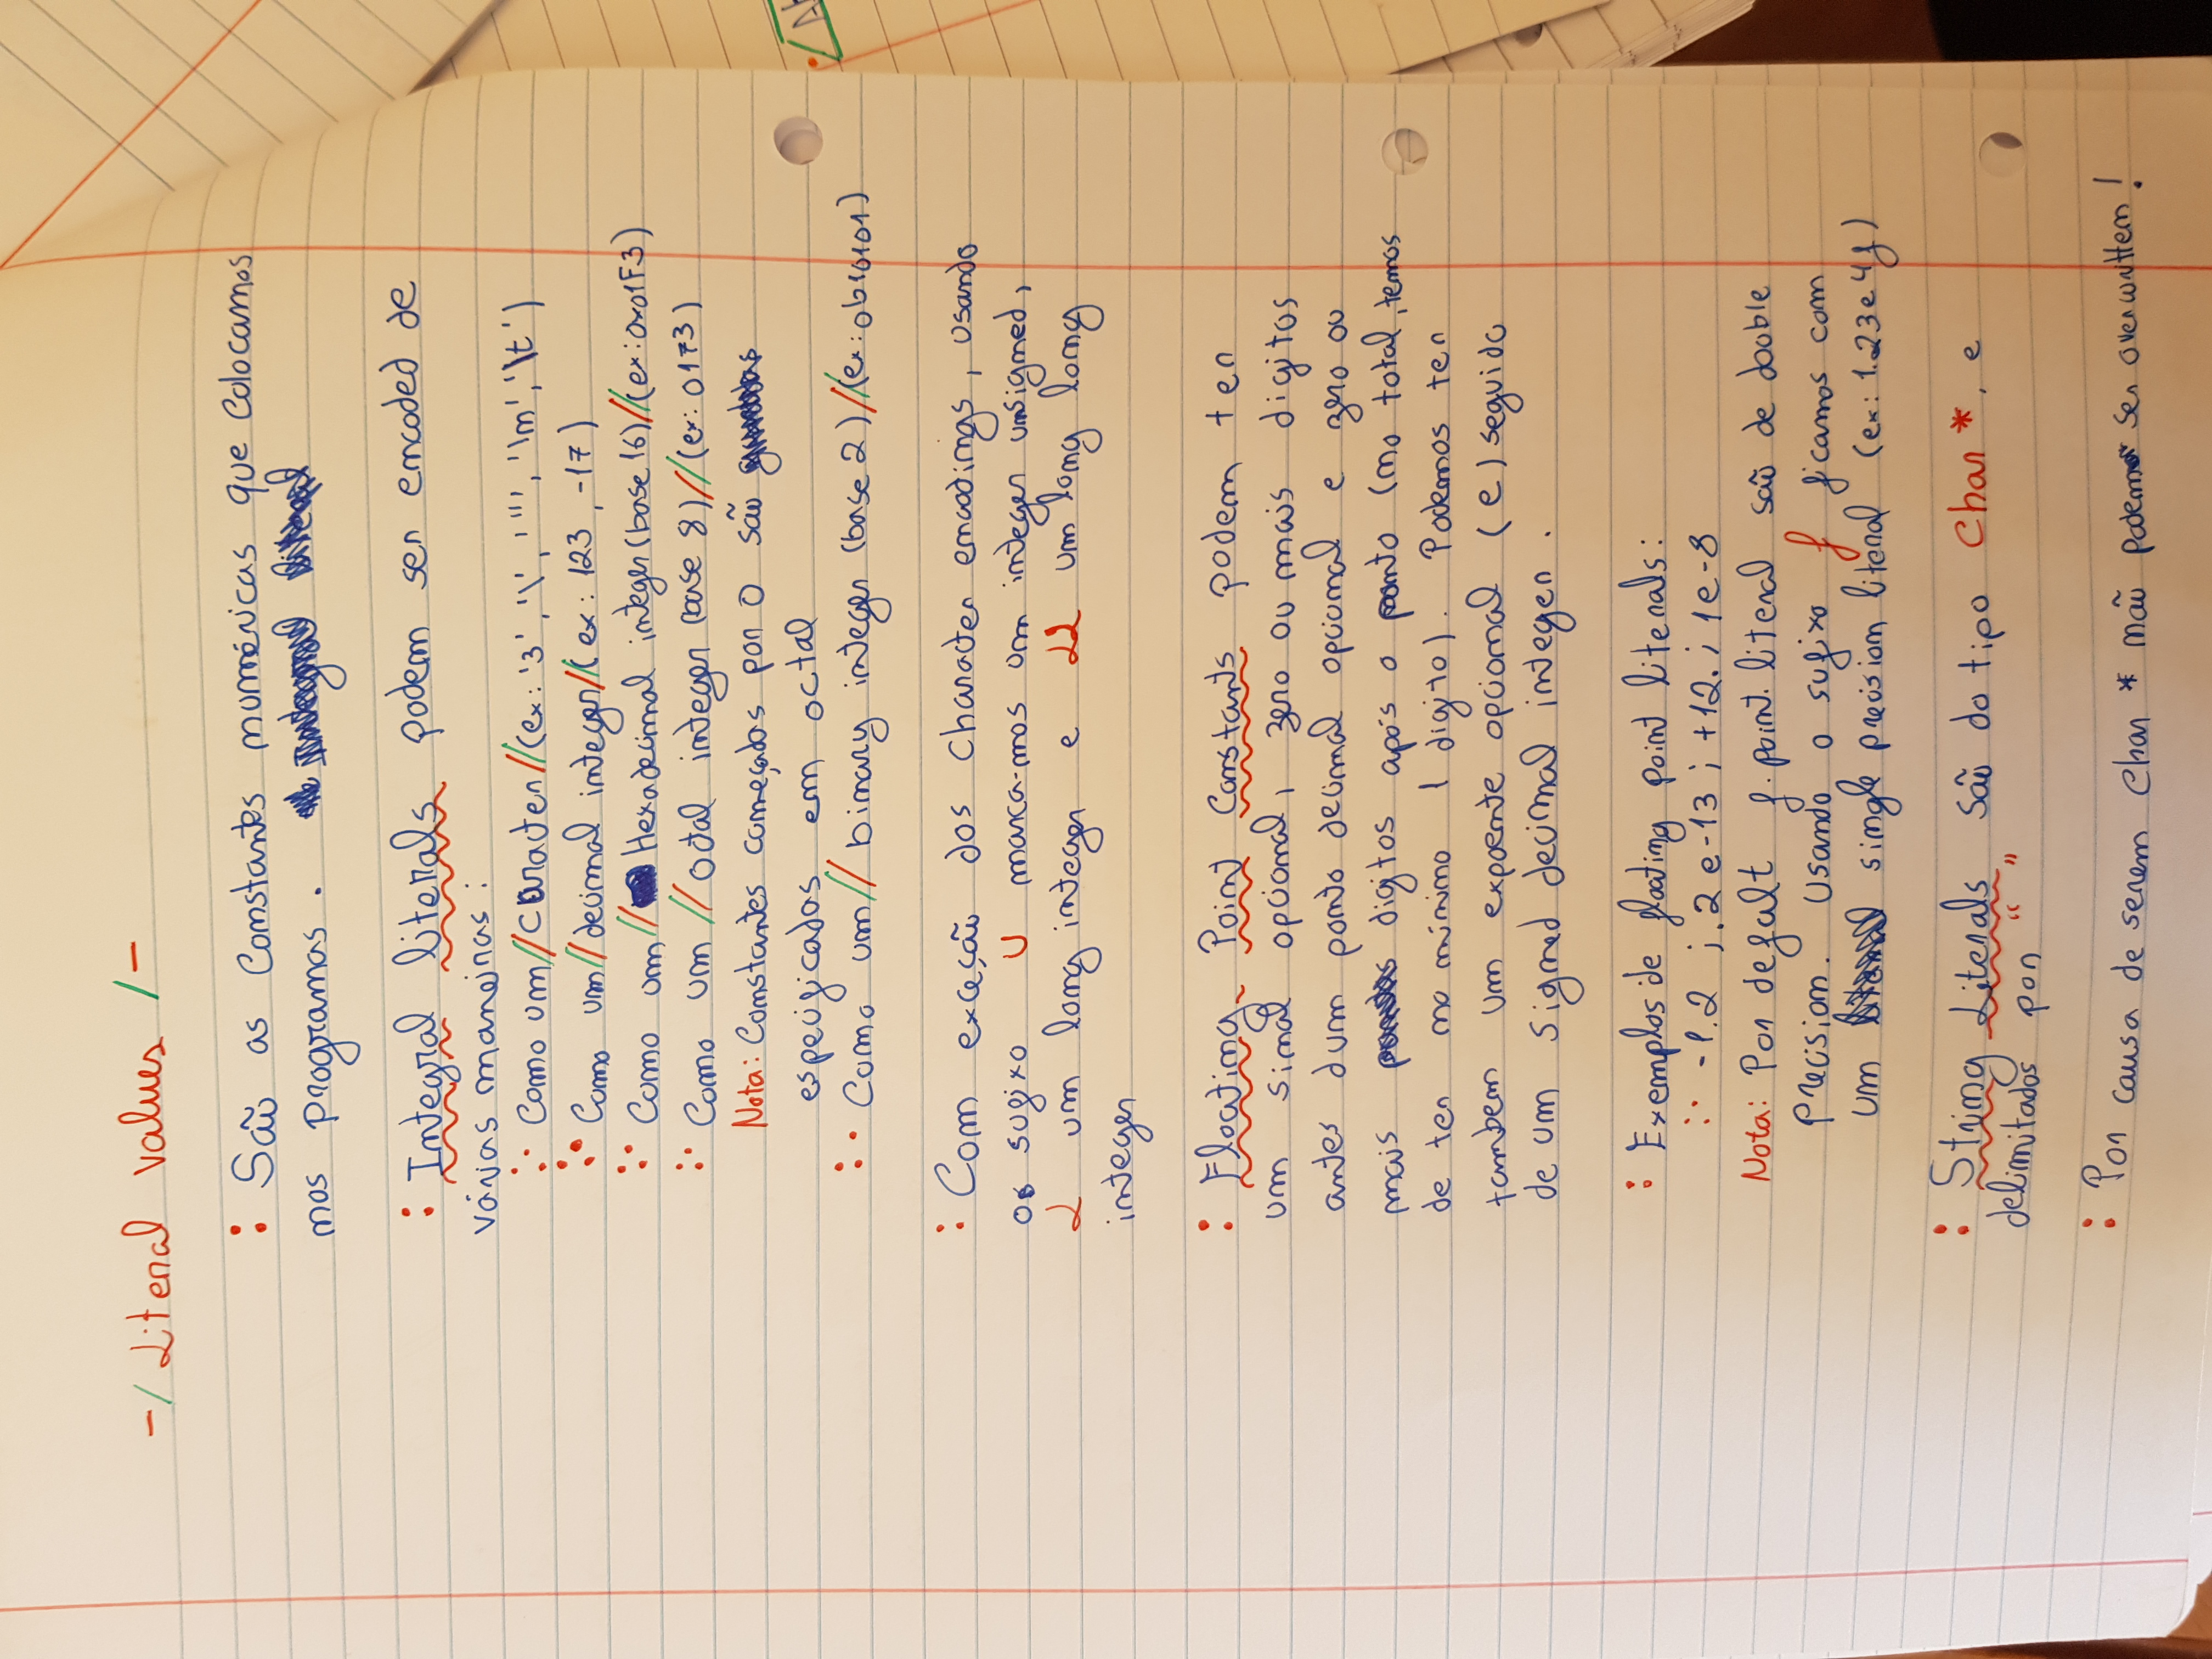 -/ Literal values /-
: São as Constantes numéricas que colocamos
nos programas.
: Integral literals podem ser encoded de
várias maneiras:
:· Como um//caracter//(ex: '3', '\', '"', '\n', '\t')
:· Como um//decimal integer//(ex: 123, -17)
:· Como um// Hexadecimal integer (base 16)//(ex: 0x01F3)
:· Como um // octal integer (base 8)//(ex: 0173)
Nota: Constantes começadas por 0 são
especificadas em octal
:· Como um// binary integer (base 2)//(ex: 0b10101)
: Com exceção dos character encodings, usando
o sufixo U marca-mos um integer unsigned,
L um long integer e LL um long long
integer
: Floating Point Constants podem ter
um sinal opcional, zero ou mais digitos
antes dum ponto decimal opcional e zero ou
mais digitos após o ponto (no total, temos
de ter no mínimo 1 digito). Podemos ter
tambem um expoente opcional (e) seguido
de um signed decimal integer.
: Exemplos de floating point literals:
:· -1.2 ; .2e-13 ; +12. ; 1e-8
Nota: Por defalt f. point. literal são de double
precision. Usando o sufixo f ficamos com
um single precision literal (ex: 1.23e4f)
: String Literals são do tipo Char *, e
delimitados por " "
: Por causa de serem Char * não podem ser overwrittem!
A